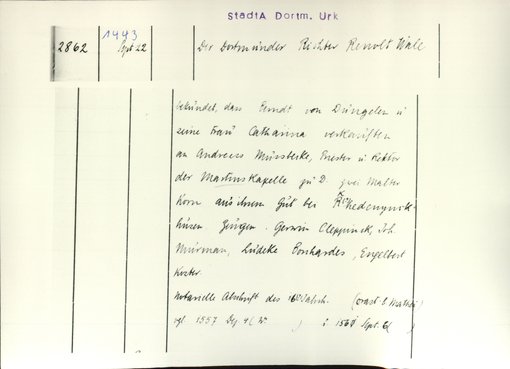 StadtA Dortm. Urk
2862 1443 Sept. 22 Der Dortmunder Richter Renolt Wale
bekundet, dass Erndt von Düngelen u
seine Frau Catharina verkauften
an Andreas Münsterke, Priester u Rektor
der Martinskapelle zu D. zwei Malter
Korn aus ihrem Gut bei
husen Zeugen: Gerwin Cleppinck, Joh.
Murman, Ludeke Bonhardes, Engelbert
Koster.
Notarielle Abschrift des 16. Jahrh.
vgl. 1557 Dez. 4 ( ) : 1560 Sept.